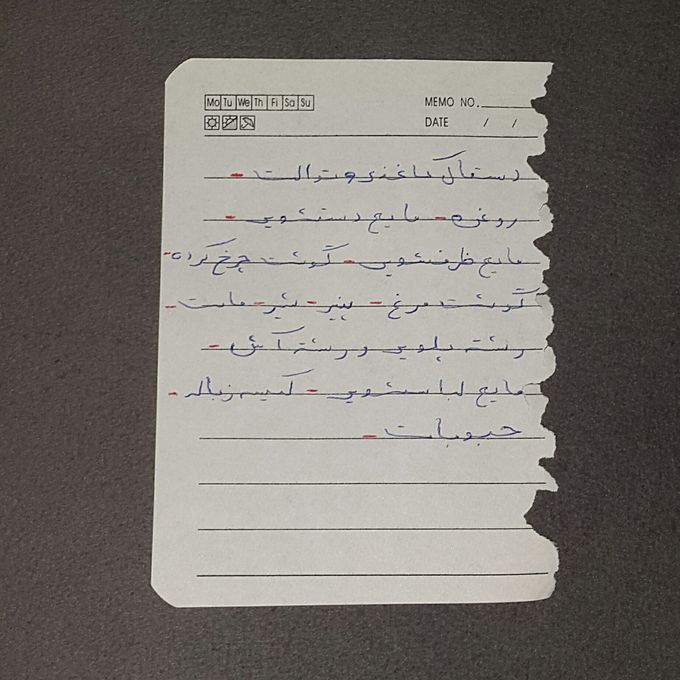 Mo Tu We Th Fi Sa Su
MEMO NO.
DATE / /
دستمال کاغذی و توالت -
روغن - مایع دستشویی -
مایع ظرفشویی - گوشت چرخ کرده -
گوشت مرغ - پنیر - شیر - ماست -
رشته پلویی و رشته آش -
مایع لباسشویی - کیسه زباله -
حبوبات -